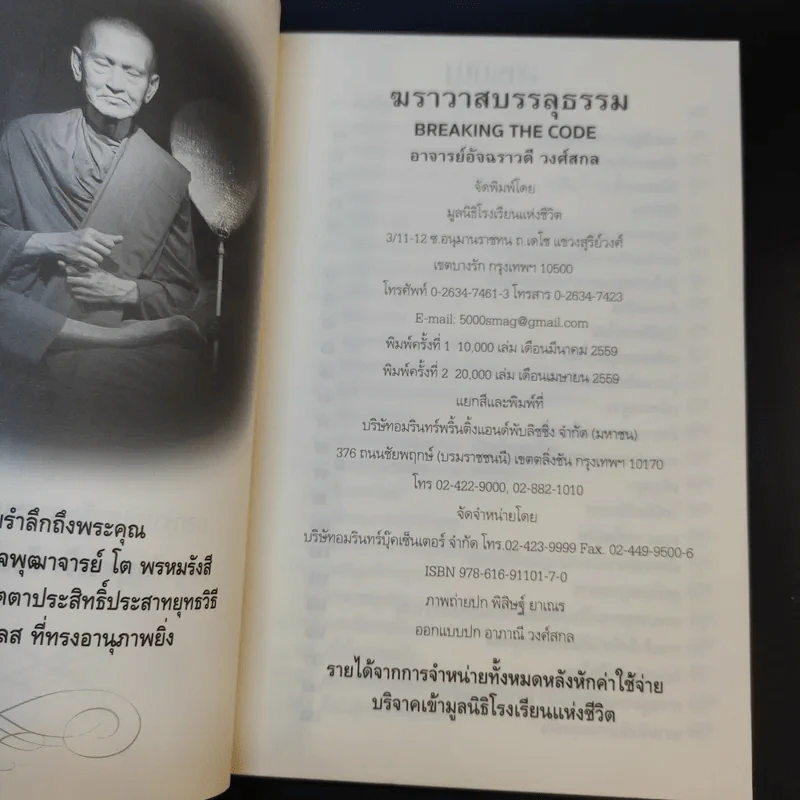 รำลึกถึงพระคุณ
จพุฒาจารย์ โต พรหมรังสี
ตตาประสิทธิ์ประสาทยุทธวิธี
ลส ที่ทรงอานุภาพยิ่ง
ฆราวาสบรรลุธรรม
BREAKING THE CODE
อาจารย์อัจฉราวดี วงศ์สกล
จัดพิมพ์โดย
มูลนิธิโรงเรียนแห่งชีวิต
3/11-12 ซ.อนุมานราชทน ถ.เดโช แขวงสุริย์วงศ์
เขตบางรัก กรุงเทพฯ 10500
โทรศัพท์ 0-2634-7461-3 โทรสาร 0-2634-7423
E-mail: 5000smag@gmail.com
พิมพ์ครั้งที่ 1 10,000 เล่ม เดือนมีนาคม 2559
พิมพ์ครั้งที่ 2 20,000 เล่ม เดือนเมษายน 2559
แยกสีและพิมพ์ที่
บริษัทอมรินทร์พริ้นติ้งแอนด์พับลิชชิ่ง จำกัด (มหาชน)
376 ถนนชัยพฤกษ์ (บรมราชชนนี) เขตตลิ่งชัน กรุงเทพฯ 10170
โทร 02-422-9000, 02-882-1010
จัดจำหน่ายโดย
บริษัทอมรินทร์บุ๊คเซ็นเตอร์ จำกัด โทร.02-423-9999 Fax. 02-449-9500-6
ISBN 978-616-91101-7-0
ภาพถ่ายปก พิสิษฐ์ ยาเณร
ออกแบบปก อาภาณี วงศ์สกล
รายได้จากการจำหน่ายทั้งหมดหลังหักค่าใช้จ่าย
บริจาคเข้ามูลนิธิโรงเรียนแห่งชีวิต